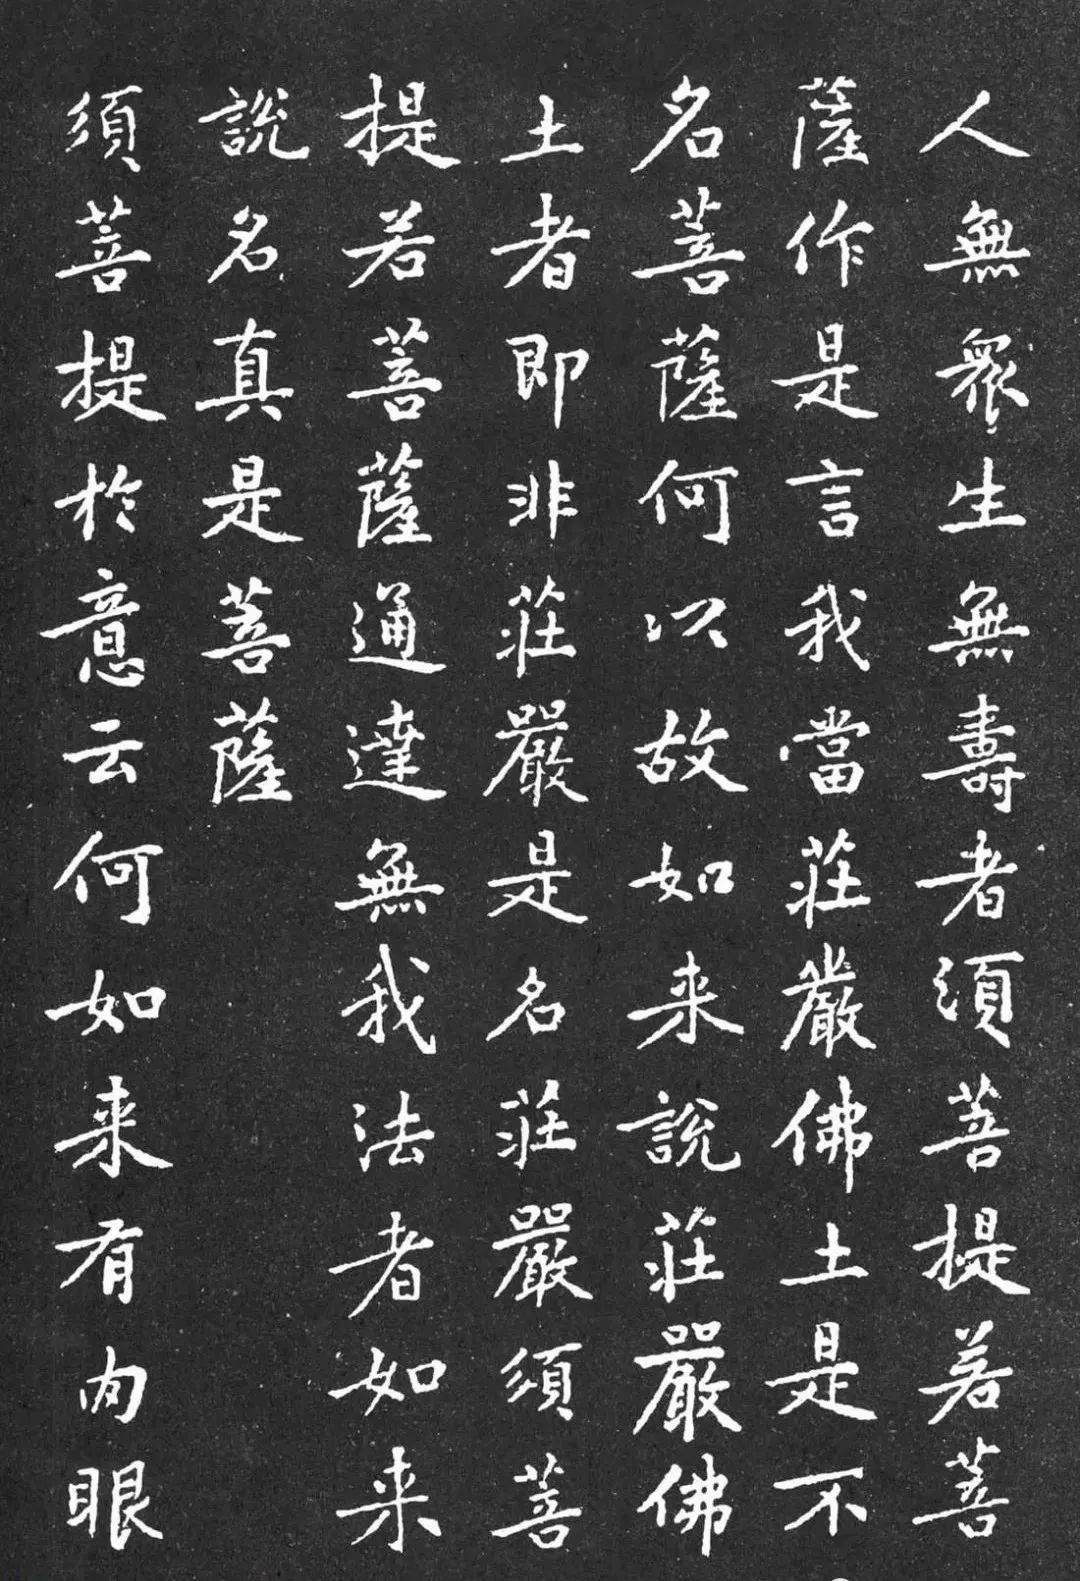 人無眾生無壽者須菩提若菩
薩作是言我當莊嚴佛土是不
名菩薩何以故如来說莊嚴佛
土者即非莊嚴是名莊嚴須菩
提若菩薩通達無我法者如来
說名真是菩薩
須菩提於意云何如来有肉眼